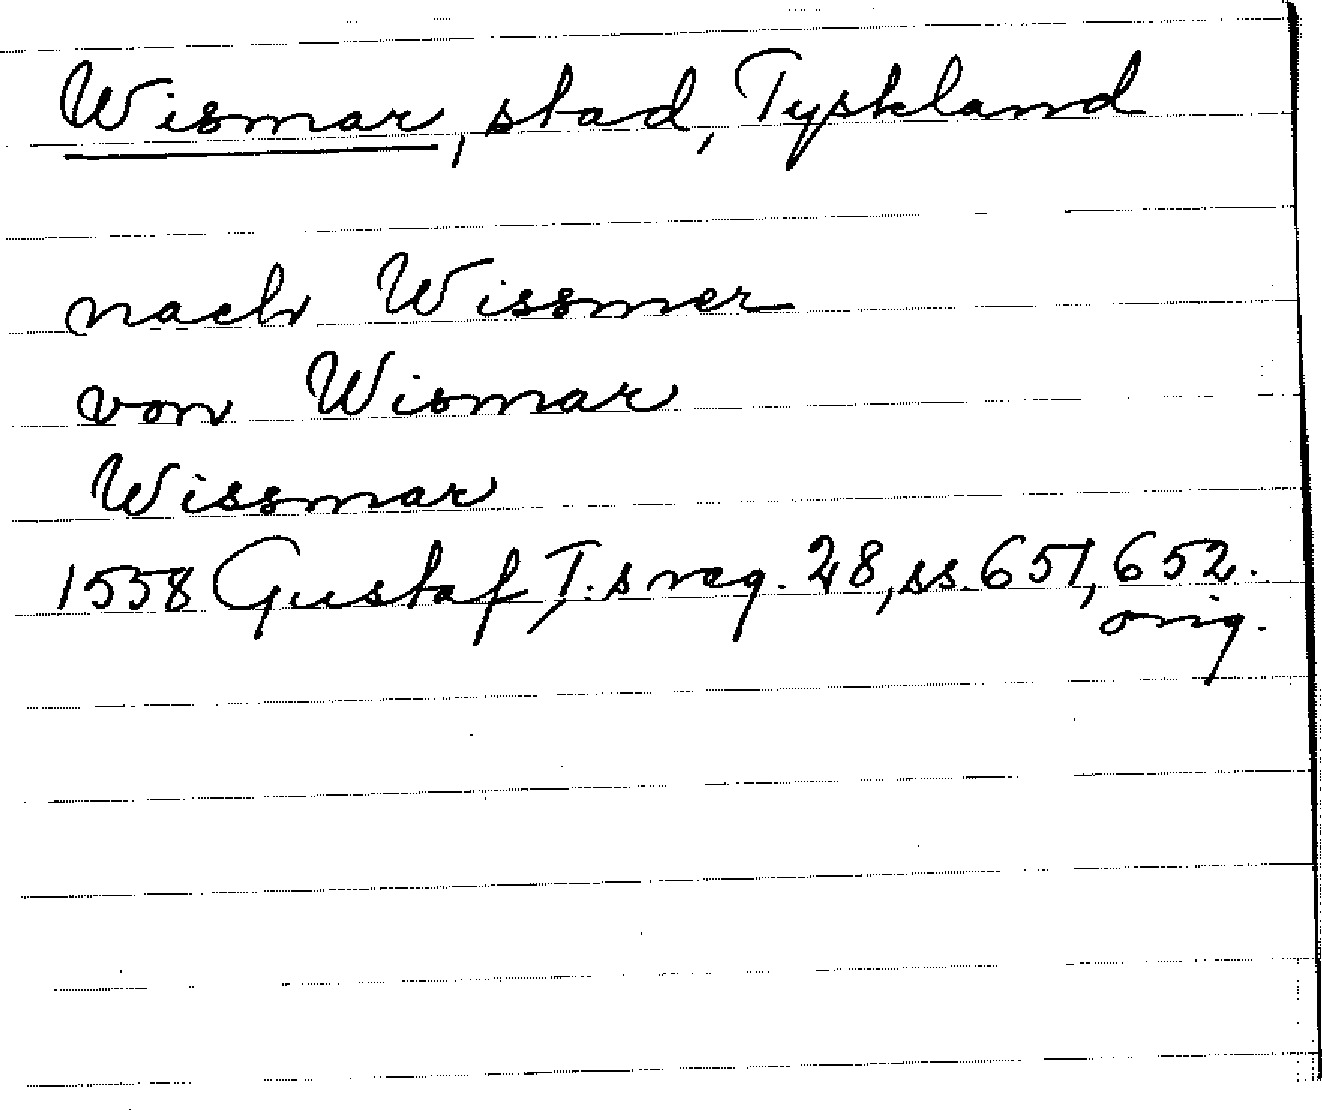 Wismar, stad, Tyskland
nach Wissmer
von Wismar
Wissmar
1558 Gustaf I.s reg. 28, ss. 651, 652.
orig.